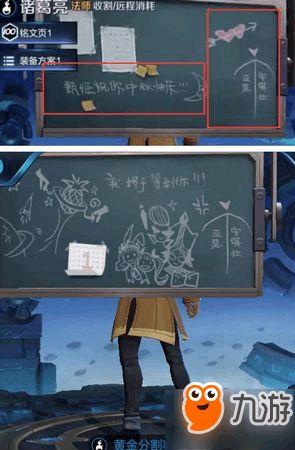 诸葛亮 法师 收割/远程消耗
100 铭文页1
装备方案1
甄姬祝你中秋快乐!!!
亚瑟
安琪拉
我终于等到你!!!
亚瑟
安琪拉
1
黄金分割率
九游